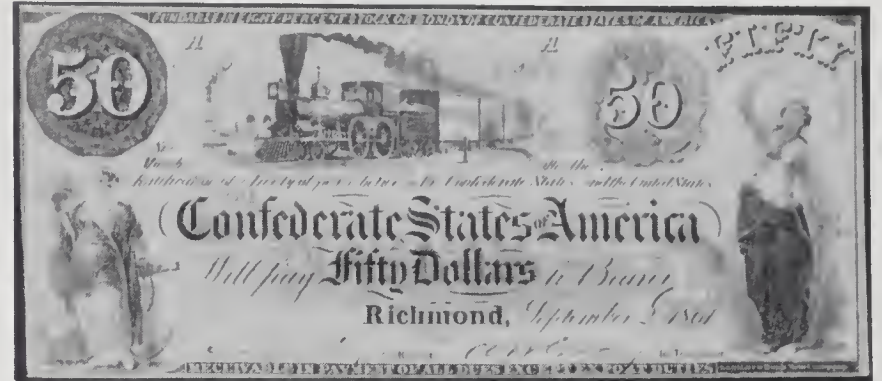 FUNDABLE IN EIGHT PERCENT STOCK OR BONDS OF CONFEDERATE STATES OF AMERICA
A A
50 50 FIFTY
Ratification of a treaty of peace between the Confederate States and the United States
Confederate States of America
Will pay Fifty Dollars to Bearer
Richmond, September
RECEIVABLE IN PAYMENT OF ALL DUES EXCEPT EXPORT DUTIES